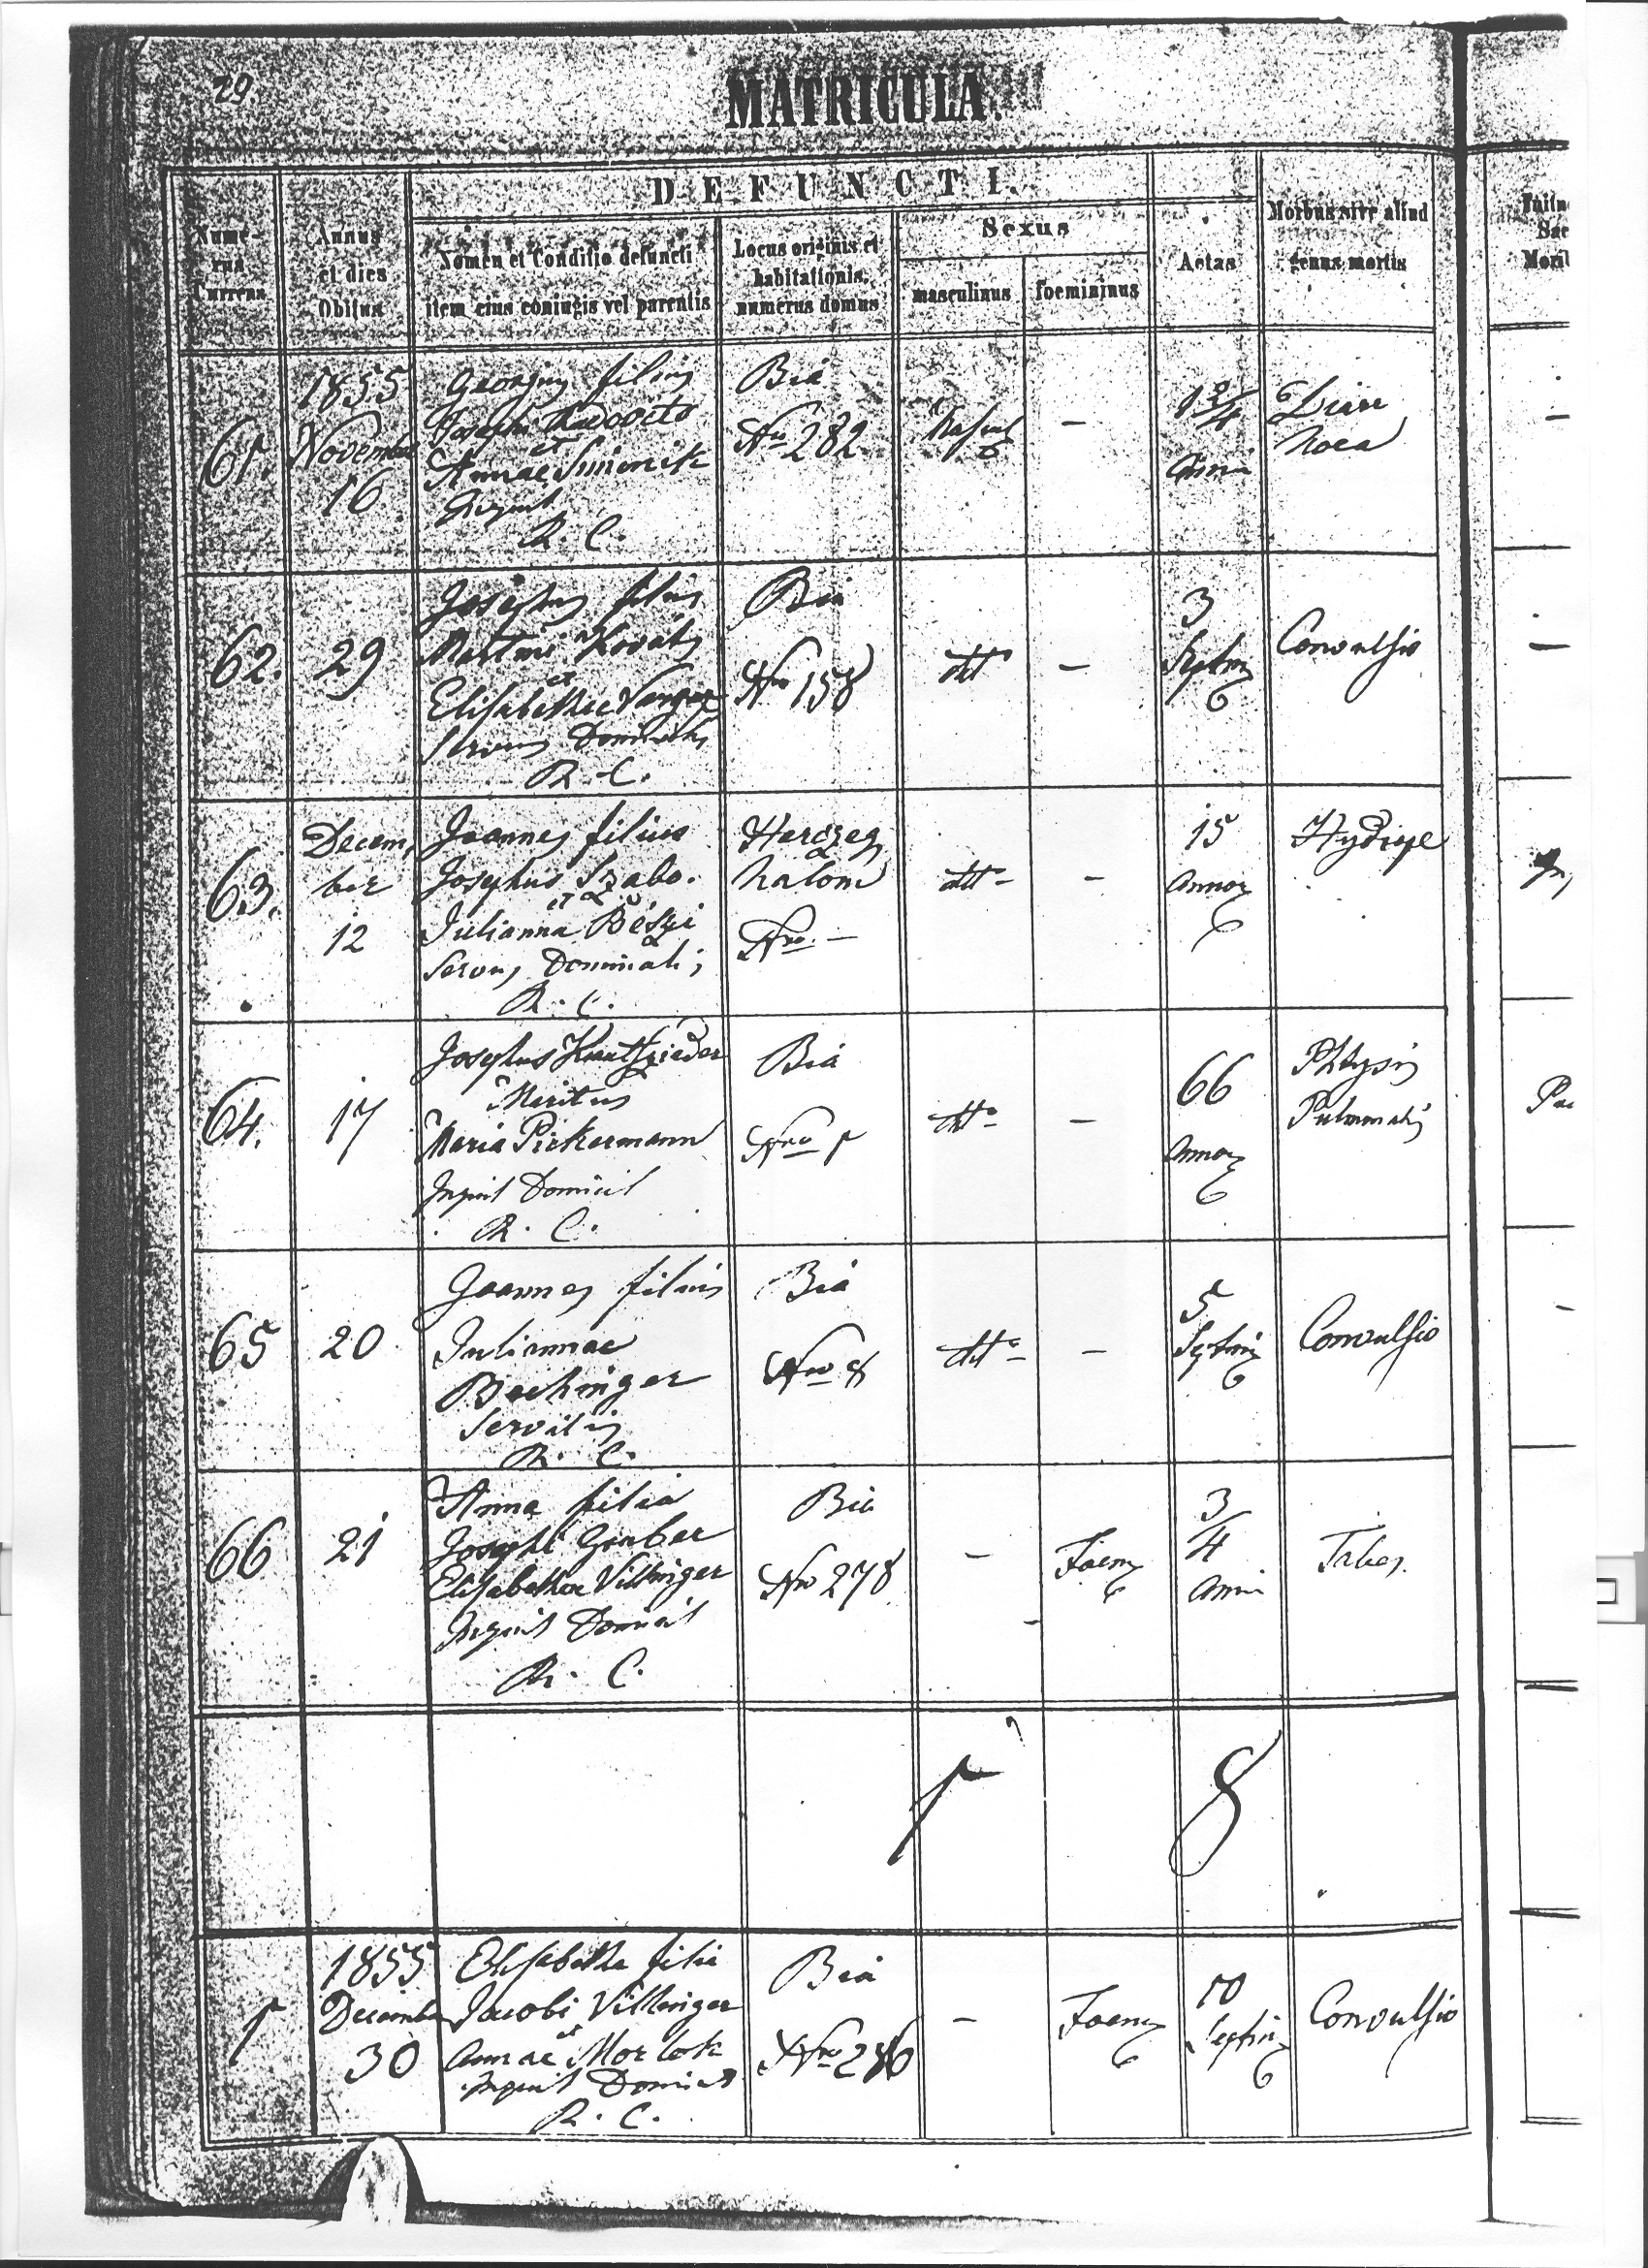 29.
MATRICULA.
DEFUNCTI.
Nume-
rus
Currens
Annus
et dies
Obitus
Nomen et Conditio defuncti
item eius coniugis vel parentis
Locus originis et
habitationis,
numerus domus
Sexus
masculinus
foemininus
Aetas
Morbus sive aliud
genus mortis
61.
1855
November
16
Georgius filius
Josephi
et
Annae
R. C.
Bia
Nro 282
Mascul
-
1 2/4
Anni
Diarr
hoea
62.
29
Josephus filius
Martini Kováts
et
Elisabethae
Servus Dominalis
R. C.
Bia
Nro 158
dtt
-
3
Septim
Convulsio
63.
Decem,
ber
12
Joannes filius
Josephus Szabo.
et
Julianna
Servus Dominalis
R. C.
Herczeg
halom
Nro. -
dtt -
-
15
Annor
Hydrope
64.
17
Josephus
Maritus
Maria Pirkermann
Inquil Domicil
R. C.
Bia
Nro 1
dtto
-
66
Annor
Phtysis
Pulmonalis
65
20
Joannes filius
Juliannae
Bechinger
Servilis
R. C.
Bia
Nro 8
dtto -
-
5
Septim
Convulsio
66
21
Anna filia
Josephi Gruber
Elisabethae Villinger
Inquil Domicil
R. C.
Bia
Nro 278
-
Foem
3/4
Anni
Tabes.
1
8
1
1855
December
30
Elisabetha filia
Jacobi Villinger
et
Annae Morlok
Inquil Domicil
R. C.
Bia
Nro 286
-
Foem
10
Septim
Convulsio